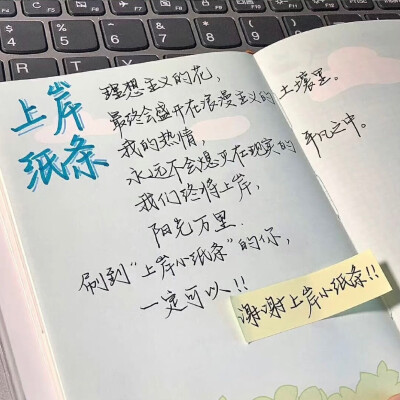 $ % ^ & * ( )
4 5 6 7 8 9 0
上岸
纸条
理想主义的花,
最终会盛开在浪漫主义的土壤里。
我的热情,
永远不会熄灭在现实的平凡之中。
我们终将上岸,
阳光万里.
刷到“上岸小纸条”的你,
一定可以!!
谢谢上岸小纸条!!